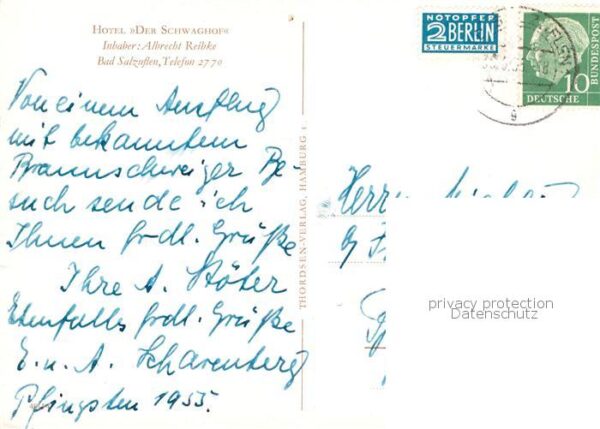 HOTEL »DER SCHWAGHOF«
Inhaber: Albrecht Reibke
Bad Salzuflen, Telefon 2770
NOTOPFER
2 BERLIN
STEUERMARKE
10
DEUTSCHE
BUNDESPOST
Von einem Ausflug
mit bekanntem
Braunschweiger Be-
such sende ich
Ihnen frdl. Grüße
Ihre A. Stöter
Ebenfalls frdl. Grüße
E. u. A. Scharenberg
Pfingsten 1955.
THORDSEN-VERLAG, HAMBURG 1
Herrn
privacy protection
Datenschutz